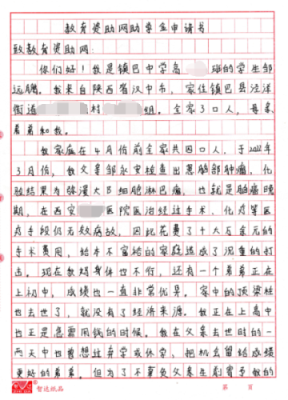 教育资助网助学金申请书
致教育资助网:
你们好!我是镇巴中学高 班的学生邹
远腾。我来自陕西省汉中市,家住镇巴县泾洋
街道 村 组。全家3口人,母亲
弟弟和我。
我家在4月份前全家共四口人,于2022年
3月份,我父亲邹永安检查出患脑部肿瘤,化
验结果为弥漫大B细胞淋巴瘤,也就是脑癌晚
期,在西安 医院医治经过手术,化疗等医
疗手段仍无效病故,因此花费了十大几万元的
手术费用,给本不富裕的家庭造成了沉重的打
击。现在教妈身体也不行,还有一个弟弟正在
上初中,成绩也一直非常优异。家中的顶梁柱
也去世了,就没有了经济来源。我正在上高中
也正是急需用钱的时候。我在父亲去世时的一
两天中曾想过弃学或休学,把机会留给成绩
更好的弟弟。但为了不辜负父亲生前寄予我的
智达纸品
第 页